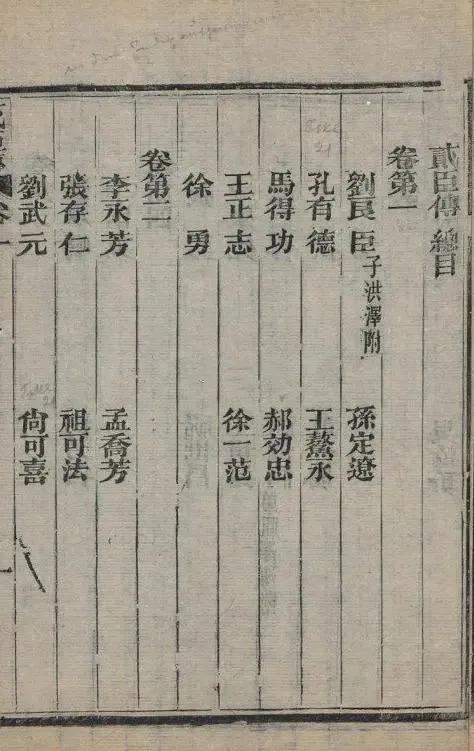 貳臣傳總目
卷第一
劉良臣 子洪澤附 孫定遼
孔有德 王鰲永
馬得功 郝効忠
王正志 徐一范
徐勇
卷第二
李永芳 孟喬芳
張存仁 祖可法
劉武元 尙可喜